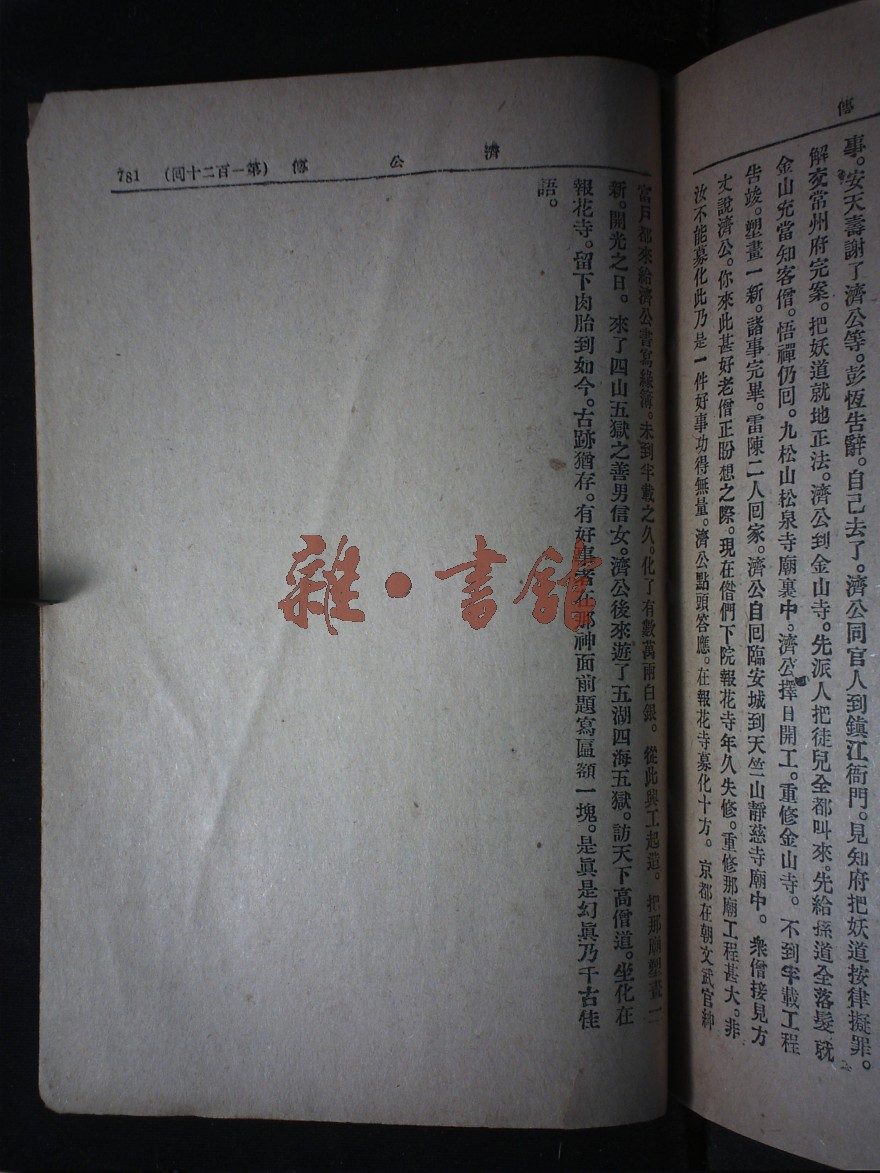 傳
事。安天壽謝了濟公等。彭恆告辭。自己去了。濟公同官人到鎮江衙門。見知府把妖道按律擬罪。
解交常州府完案。把妖道就地正法。濟公到金山寺。先派人把徒兒全都叫來。先給孫道全落髮就
金山充當知客僧。悟禪仍回。九松山松泉寺廟裏中。濟公擇日開工。重修金山寺。不到半載工程
告竣。塑畫一新。諸事完畢。雷陳二人回家。濟公自回臨安城到天竺山靜慈寺廟中。衆僧接見方
丈說濟公。你來此甚好老僧正盼想之際。現在偺們下院報花寺年久失修。重修那廟工程甚大。非
汝不能募化此乃是一件好事功得無量。濟公點頭答應。在報花寺募化十方。京都在朝文武官紳
濟公傳 (第一百二十回) 781
富戶都來給濟公書寫緣簿。未到半載之久。化了有數萬兩白銀。從此興工起造。把那廟塑畫一
新。開光之日。來了四山五獄之善男信女。濟公後來遊了五湖四海五獄。訪天下高僧道。坐化在
報花寺。留下肉胎到如今。古跡猶存。有好事者在那神面前題寫匾額一塊。是眞是幻眞乃千古佳
語。
雜·書館